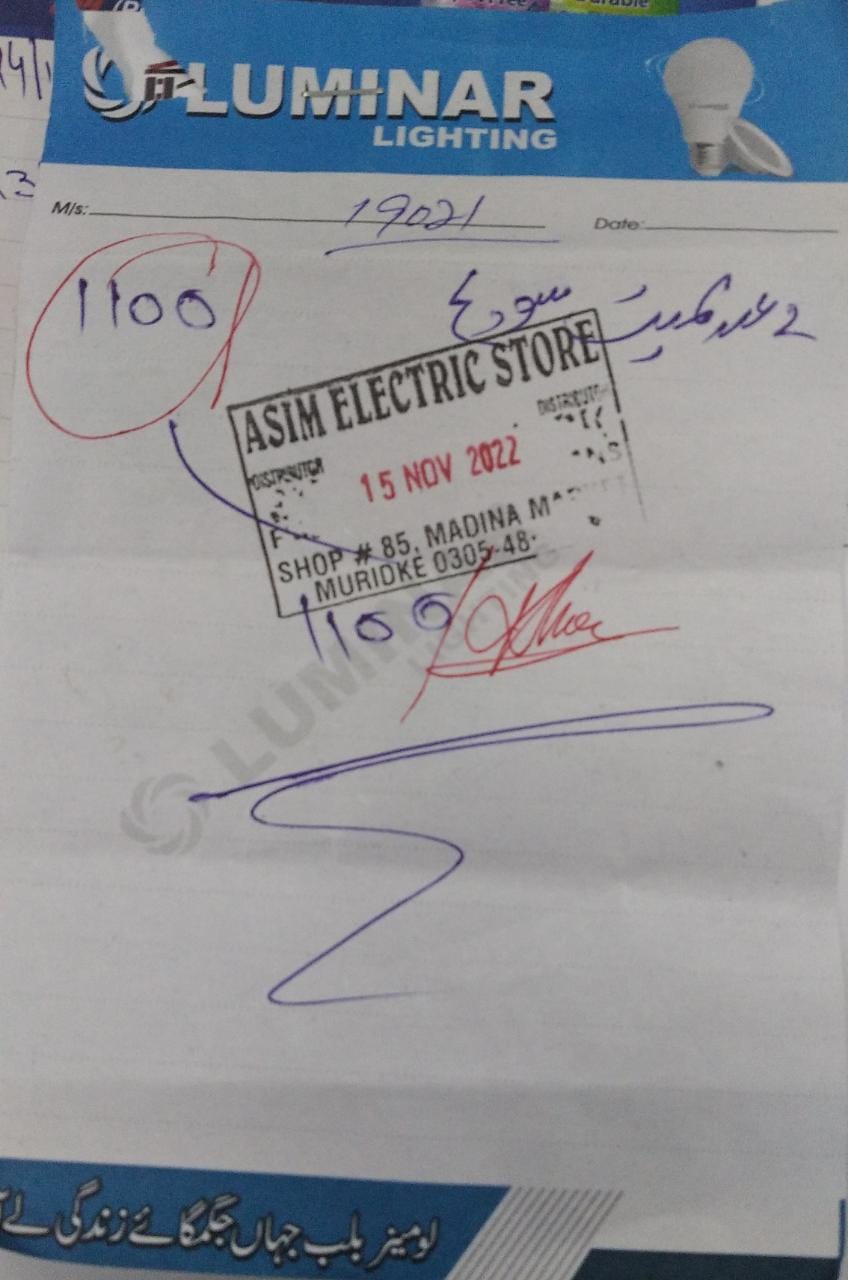 LUMINAR
LIGHTING
M/s: 19021 Date:
1100
2 عدد
ASIM ELECTRIC STORE
DISTRIBUTOR DISTRIBUTOR
15 NOV 2022
SHOP # 85, MADINA
MURIDKE 0305-48
1100
LUMINAR
LIGHTING
لومینر بلب جہاں جگمگائے زندگی لے آ